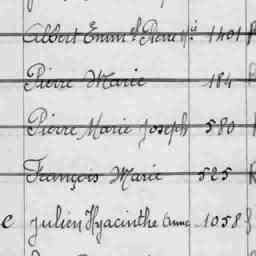 Albert Emm^el Pierre M^ie 1401
Pierre Marie 184
Pierre Marie Joseph 580
François Marie 525
e Julien Hyacinthe Anne 1058